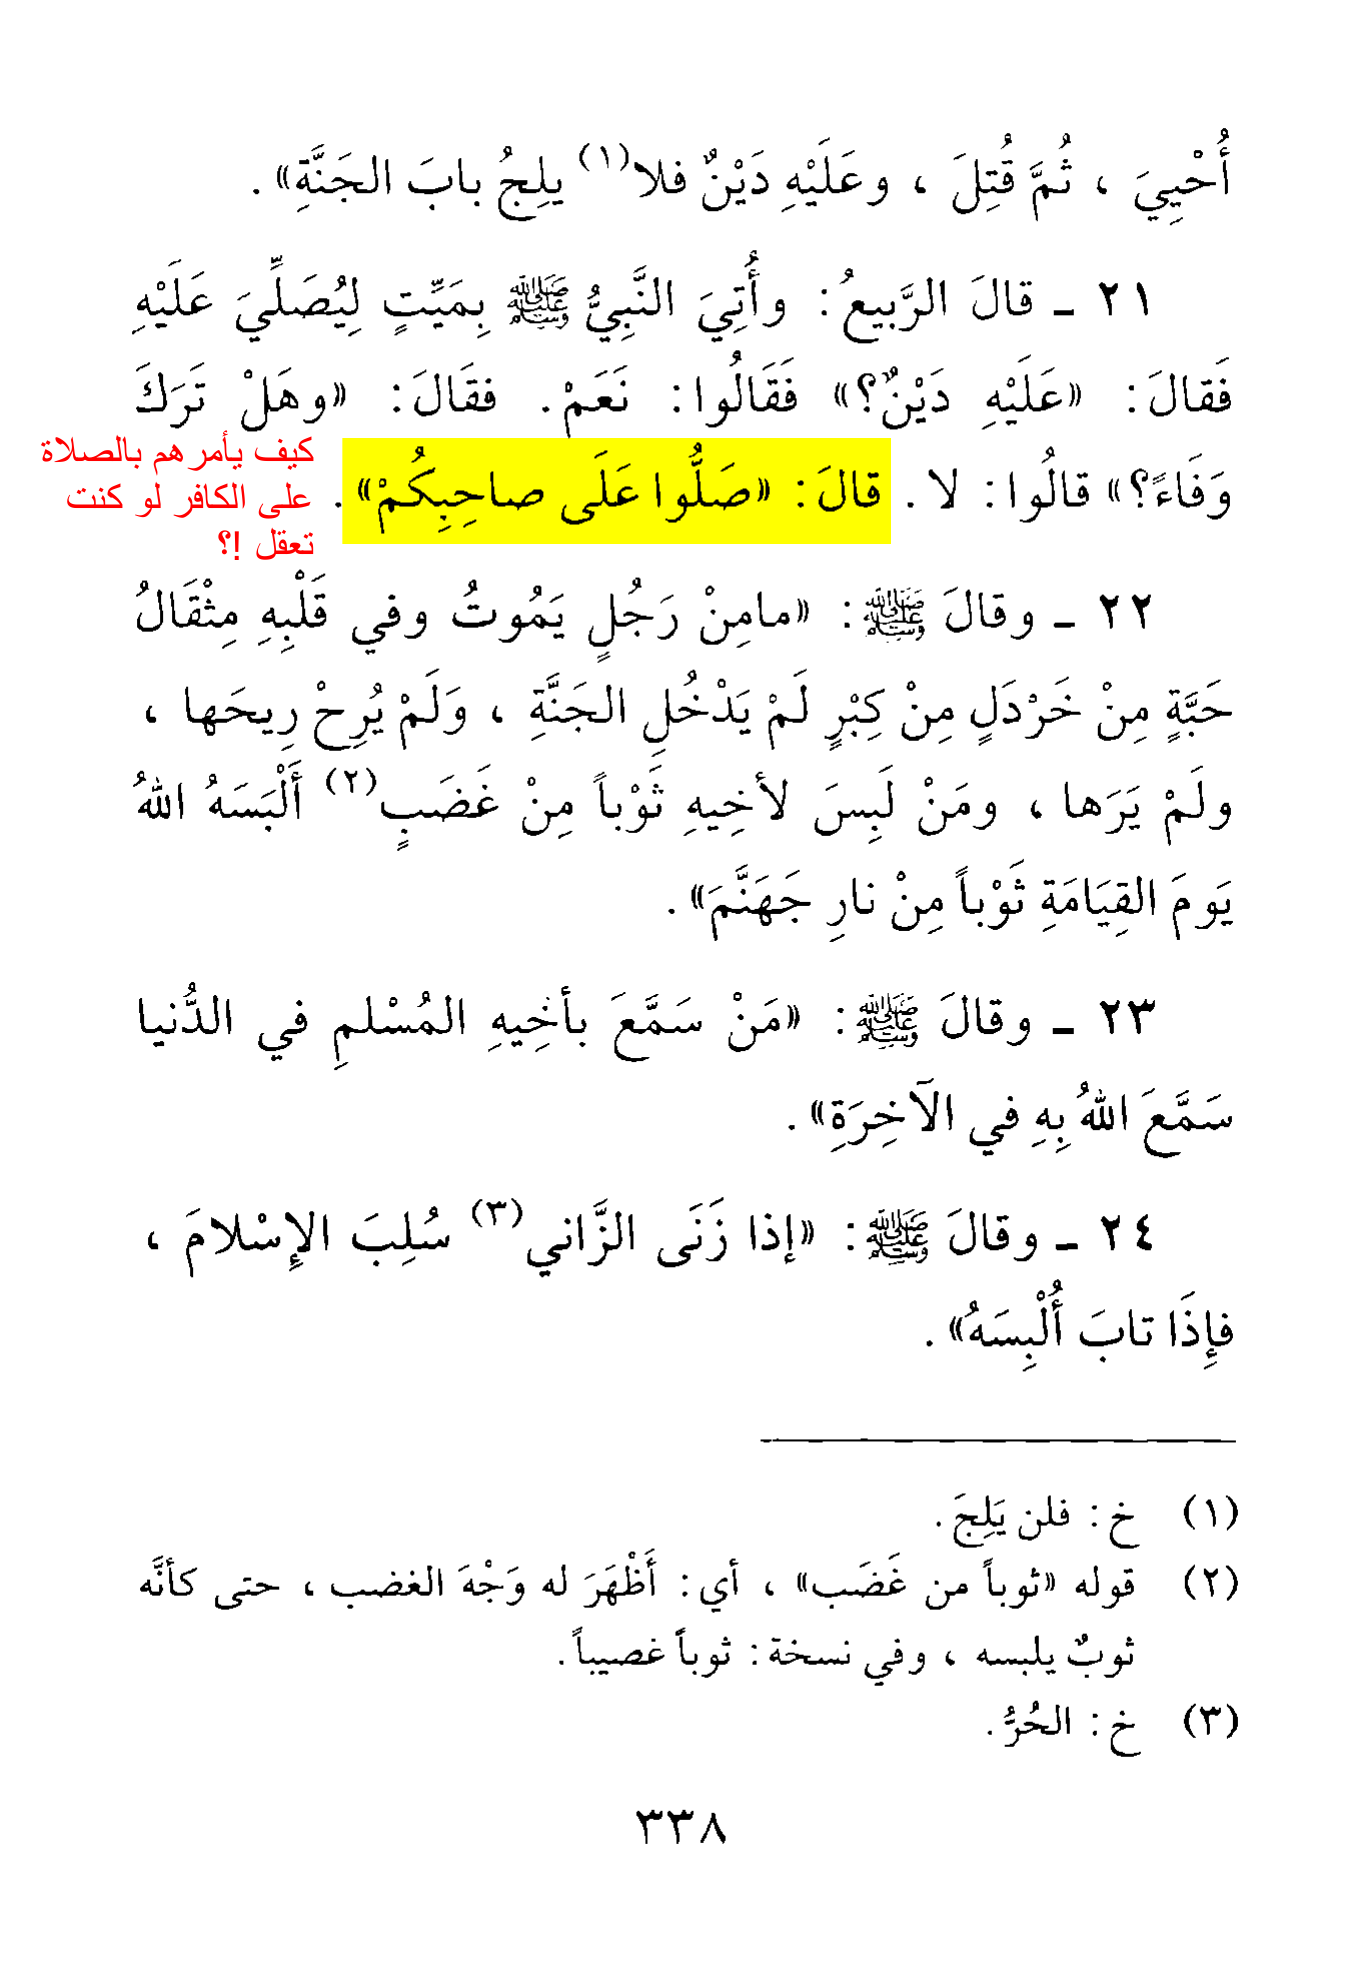 أُحْيِيَ ، ثُمَّ قُتِلَ ، وعَلَيْهِ دَيْنٌ فلا(١) يلِجُ بابَ الجَنَّةِ» .
٢١ ـ قالَ الرَّبيعُ : وأُتِيَ النَّبِيُّ ﷺ بِمَيِّتٍ لِيُصَلِّيَ عَلَيْهِ
فَقالَ : «عَلَيْهِ دَيْنٌ؟» فَقَالُوا : نَعَمْ . فقَالَ : «وهَلْ تَرَكَ
وَفَاءً؟» قالُوا : لا . قالَ : «صَلُّوا عَلَى صاحِبِكُمْ» .
كيف يأمرهم بالصلاة
على الكافر لو كنت
تعقل !؟
٢٢ ـ وقالَ ﷺ : «مامِنْ رَجُلٍ يَمُوتُ وفي قَلْبِهِ مِثْقَالُ
حَبَّةٍ مِنْ خَرْدَلٍ مِنْ كِبْرٍ لَمْ يَدْخُلِ الجَنَّةِ ، وَلَمْ يُرِحْ رِيحَها ،
ولَمْ يَرَها ، ومَنْ لَبِسَ لأخِيهِ ثَوْباً مِنْ غَضَبٍ(٢) أَلْبَسَهُ اللهُ
يَومَ القِيَامَةِ ثَوْباً مِنْ نارِ جَهَنَّمَ» .
٢٣ ـ وقالَ ﷺ : «مَنْ سَمَّعَ بأخِيهِ المُسْلمِ في الدُّنيا
سَمَّعَ اللهُ بِهِ في الآخِرَةِ» .
٢٤ ـ وقالَ ﷺ : «إذا زَنَى الزَّاني(٣) سُلِبَ الإِسْلامَ ،
فإِذَا تابَ أُلْبِسَهُ» .
(١) خ : فلن يَلِجَ .
(٢) قوله «ثوباً من غَضَب» ، أي : أَظْهَرَ له وَجْهَ الغضب ، حتى كأنَّه
ثوبٌ يلبسه ، وفي نسخة : ثوباً غصيباً .
(٣) خ : الحُرُّ .
٣٣٨